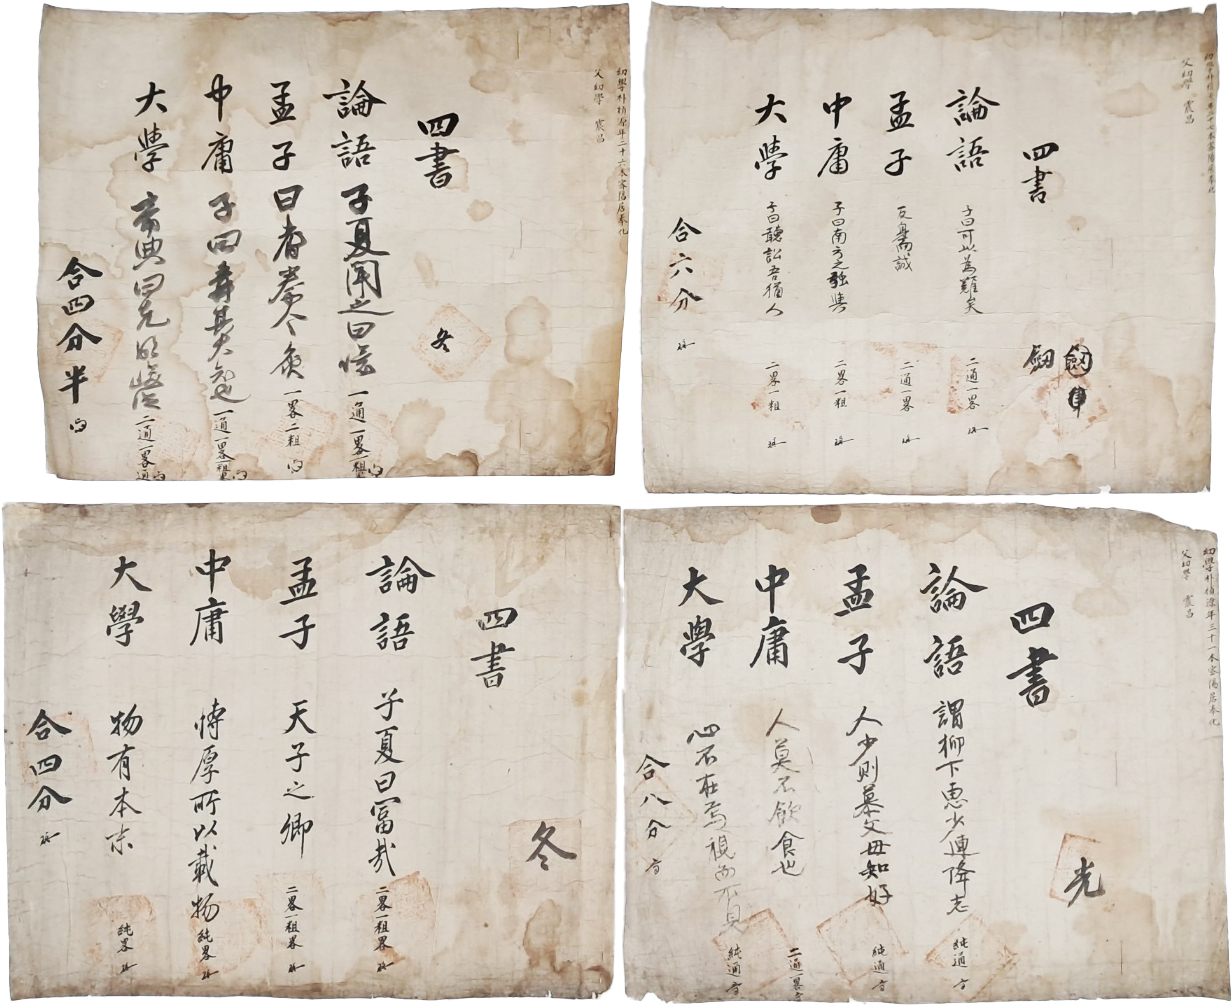 幼學朴禎源年二十六本密陽居奉化
父幼學 震昌
四書
冬
論語 子夏聞之曰噫 一通一畧一粗
孟子 曰耆秦人炙 一畧二粗
中庸 子曰舜其大知也 一通一畧一粗
大學 帝典曰克明峻德 二通一畧
合四分半
父幼學 震昌
四書
論語 子曰可以為難矣 二通一畧
孟子 反身而誠 二通一畧
中庸 子曰南方之強與 二畧一粗
大學 子曰聽訟吾猶人 二畧一粗
合六分
四書
冬
論語 子夏曰富哉 二畧一粗畧
孟子 天子之卿 二畧一粗畧
中庸 博厚所以載物 純畧
大學 物有本末 純畧
合四分
幼學朴禎源年三十一本密陽居奉化
父幼學 震昌
四書
光
論語 謂柳下惠少連降志 純通
孟子 人少則慕父母知好 純通
中庸 人莫不飲食也 二通一畧
大學 心不在焉視而不見 純通
合八分